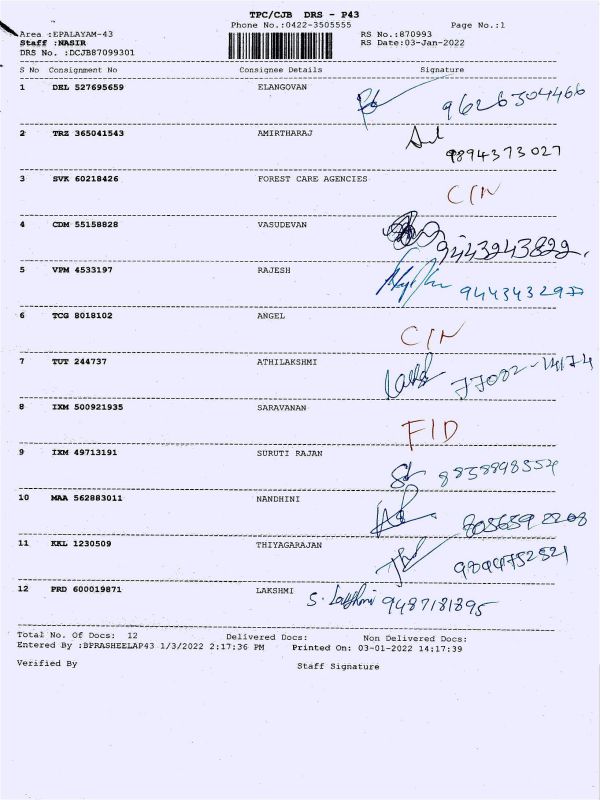 TPC/CJB DRS - P43
Phone No.:0422-3505555 Page No.:1
Area :EPALAYAM-43 RS No.:870993
Staff :NASIR RS Date:03-Jan-2022
DRS No. :DCJB87099301
S No Consignment No Consignee Details Signature
1 DEL 527695659 ELANGOVAN
9626304466
2 TRZ 365041543 AMIRTHARAJ
9894373027
3 SVK 60218426 FOREST CARE AGENCIES
C/N
4 CDM 55158828 VASUDEVAN
9443243822.
5 VPM 4533197 RAJESH
9443432977
6 TCG 8018102 ANGEL
C/N
7 TUT 244737 ATHILAKSHMI
77082-14174
8 IXM 500921935 SARAVANAN
F/D
9 IXM 49713191 SURUTI RAJAN
10 MAA 562883011 NANDHINI
11 KKL 1230509 THIYAGARAJAN
12 PRD 600019871 LAKSHMI
S. Lakshmi 9487181895
Total No. Of Docs: 12 Delivered Docs: Non Delivered Docs:
Entered By :BPRASHEELAP43 1/3/2022 2:17:36 PM Printed On: 03-01-2022 14:17:39
Verified By Staff Signature